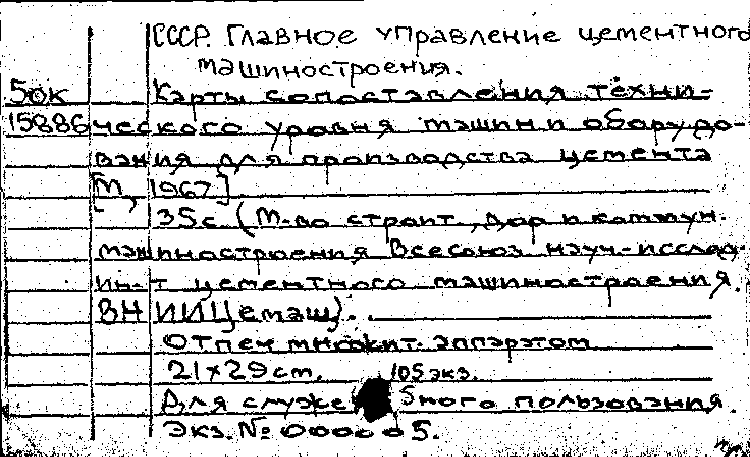 СССР. Главное управление цементного
машиностроения.
5ок Карты сопоставления техни-
15886 ческого уровня машин и оборудо-
вания для производства цемента
[М, 1967]
35с. (М-во строит., дор и коммун.
машиностроения Всесоюз науч-исслед
ин-т цементного машиностроения.
ВНИИЦемаш)..
Отпеч множит. аппаратом
21x29cm. 105 экз.
Для служебного пользования.
Экз. № 000005.